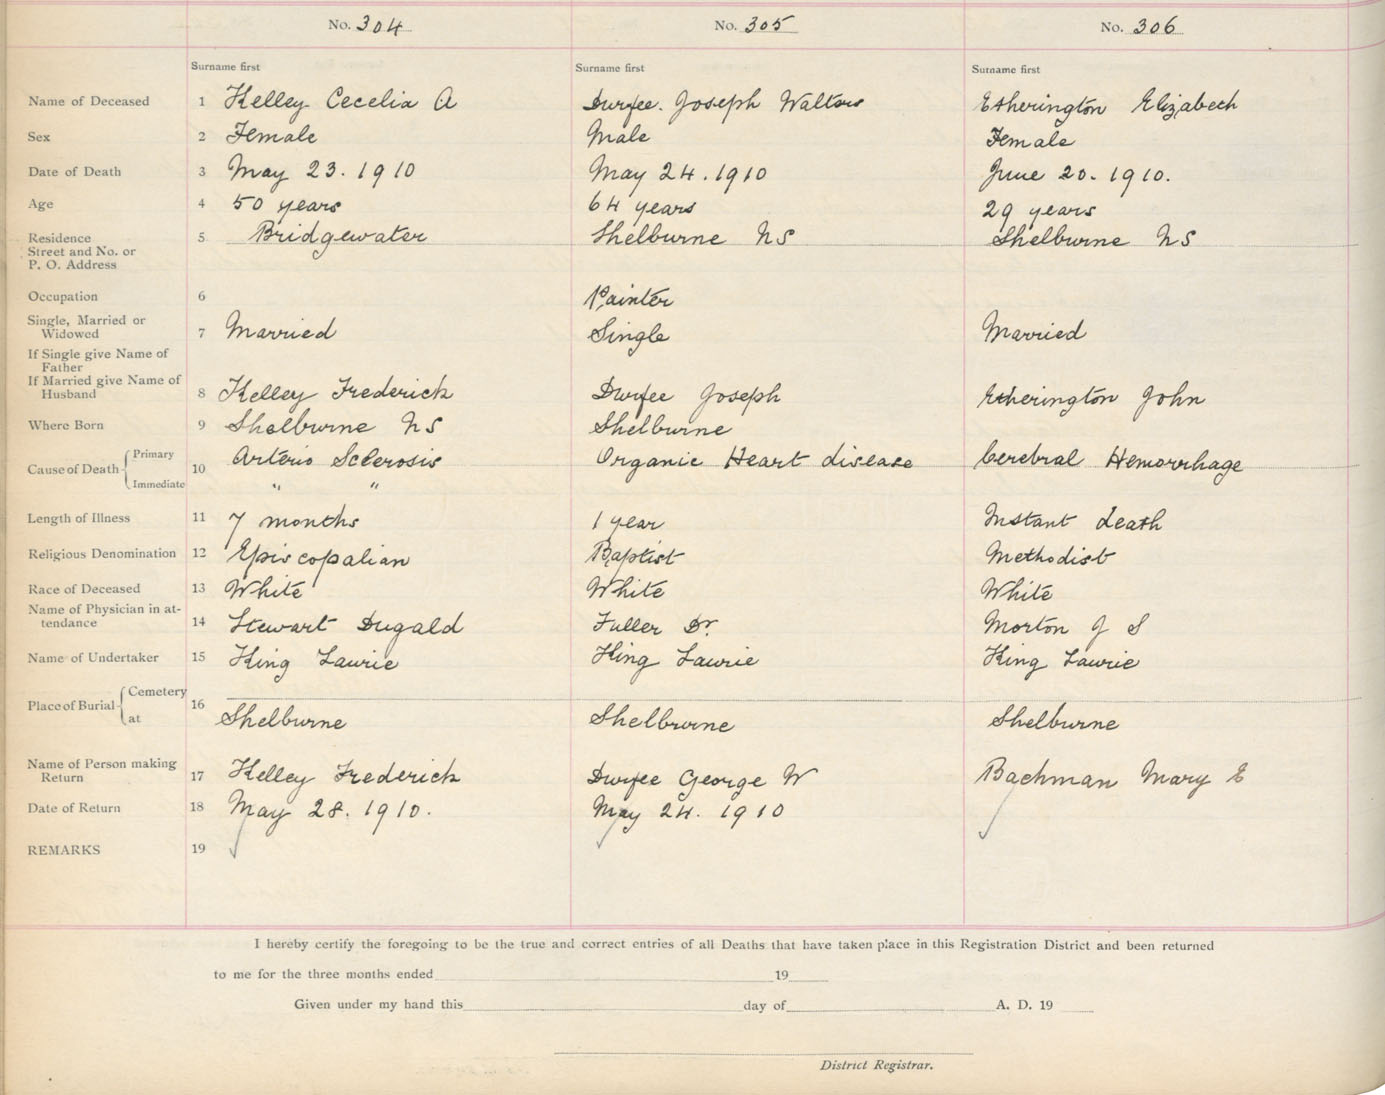 No. 304 No. 305 No. 306
Surname first Surname first Surname first
Name of Deceased 1 Kelley Cecelia A Durfee. Joseph Walters Etherington Elizabeth
Sex 2 Female Male Female
Date of Death 3 May 23. 1910 May 24. 1910 June 20. 1910.
Age 4 50 years 64 years 29 years
Residence 5 Bridgewater Shelburne NS Shelburne NS
Street and No. or
P. O. Address
Occupation 6 Painter
Single, Married or
Widowed 7 Married Single Married
If Single give Name of
Father
If Married give Name of
Husband 8 Kelley Frederick Durfee Joseph Etherington John
Where Born 9 Shelburne NS Shelburne
Cause of Death Primary 10 Arterio Sclerosis Organic Heart disease Cerebral Hemorrhage
Immediate " "
Length of Illness 11 7 months 1 year Instant death
Religious Denomination 12 Episcopalian Baptist Methodist
Race of Deceased 13 White White White
Name of Physician in at-
tendance 14 Stewart Dugald Fuller Dr. Morton J S
Name of Undertaker 15 King Laurie King Laurie King Laurie
Place of Burial Cemetery 16
at Shelburne Shelburne Shelburne
Name of Person making
Return 17 Kelley Frederick Durfee George W Bachman Mary E
Date of Return 18 May 28. 1910. May 24. 1910
REMARKS 19
I hereby certify the foregoing to be the true and correct entries of all Deaths that have taken place in this Registration District and been returned
to me for the three months ended 19
Given under my hand this day of A. D. 19
District Registrar.